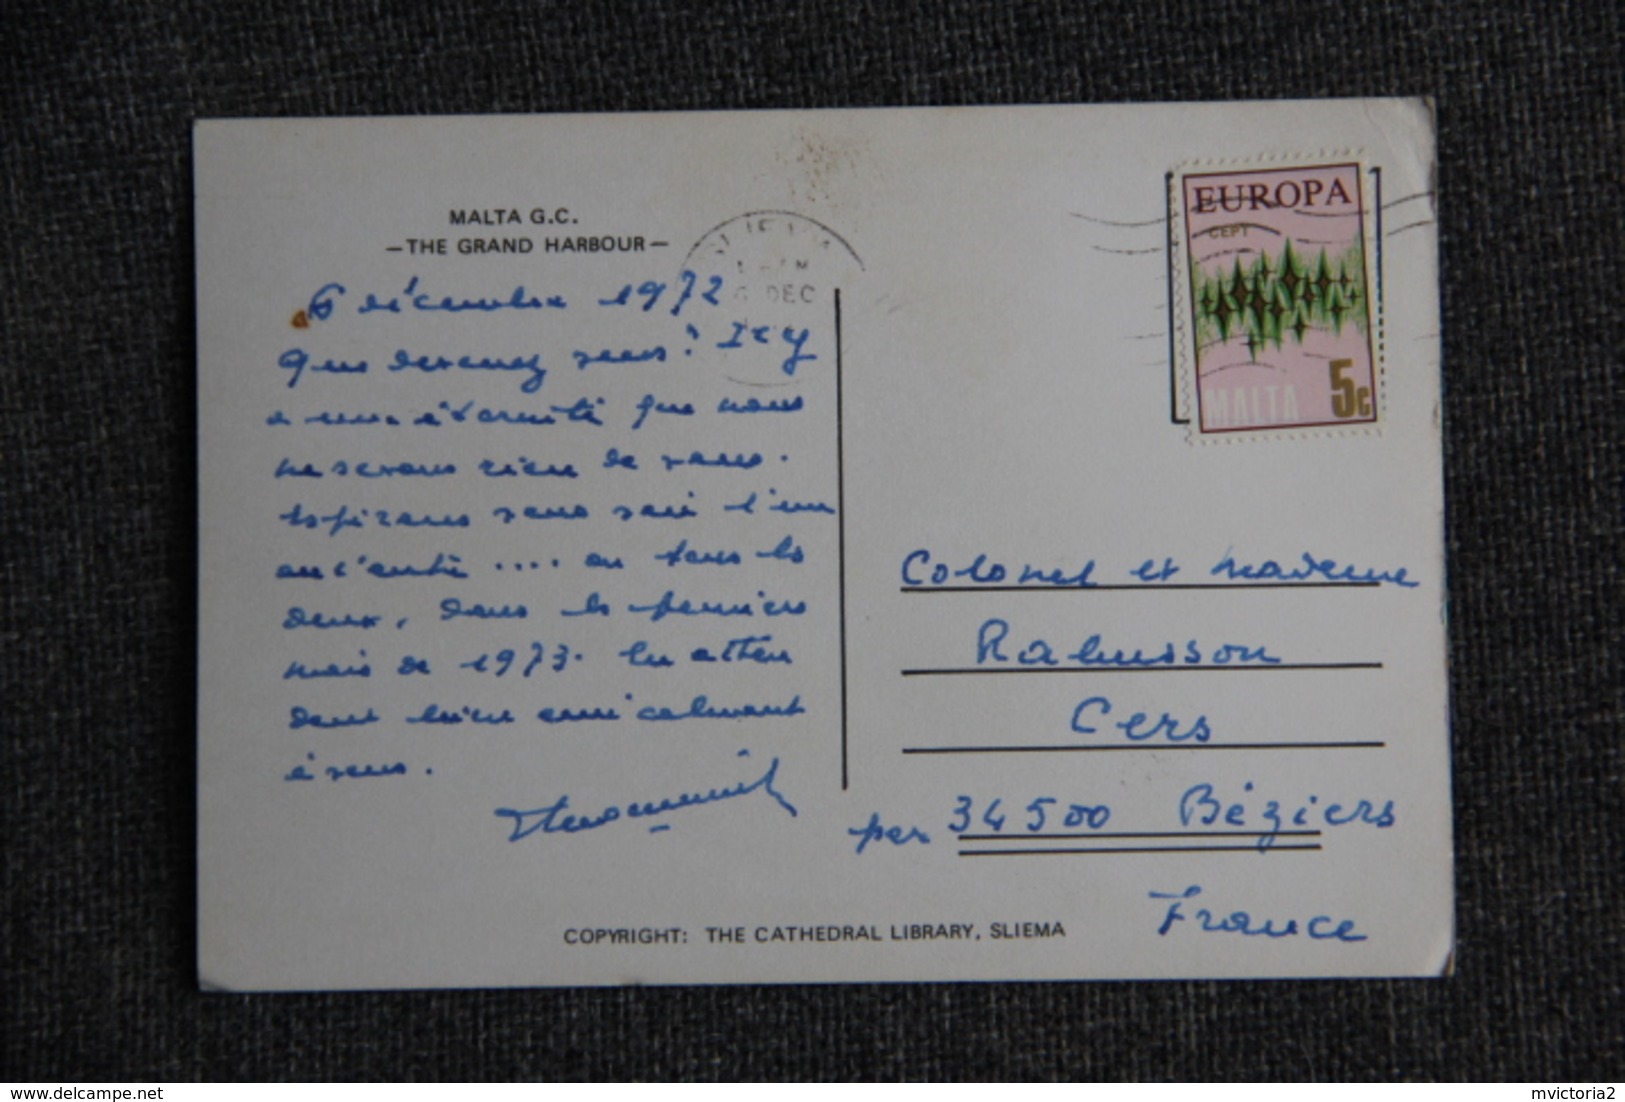 MALTA G.C.
—THE GRAND HARBOUR—
6 décembre 1972
Que devenez vous? Il y
a une éternité que nous
ne savons rien de vous.
Espérons vous voir l'un
ou l'autre .... ou tous les
deux, dans les premiers
mois de 1973. En atten
dant bien amicalement
à vous.
DEC
EUROPA
CEPT
MALTA 5c
Colonel et Madame
Rabusson
Cers
par 34500 Béziers
France
COPYRIGHT: THE CATHEDRAL LIBRARY, SLIEMA
delcampe.net
mvictoria2